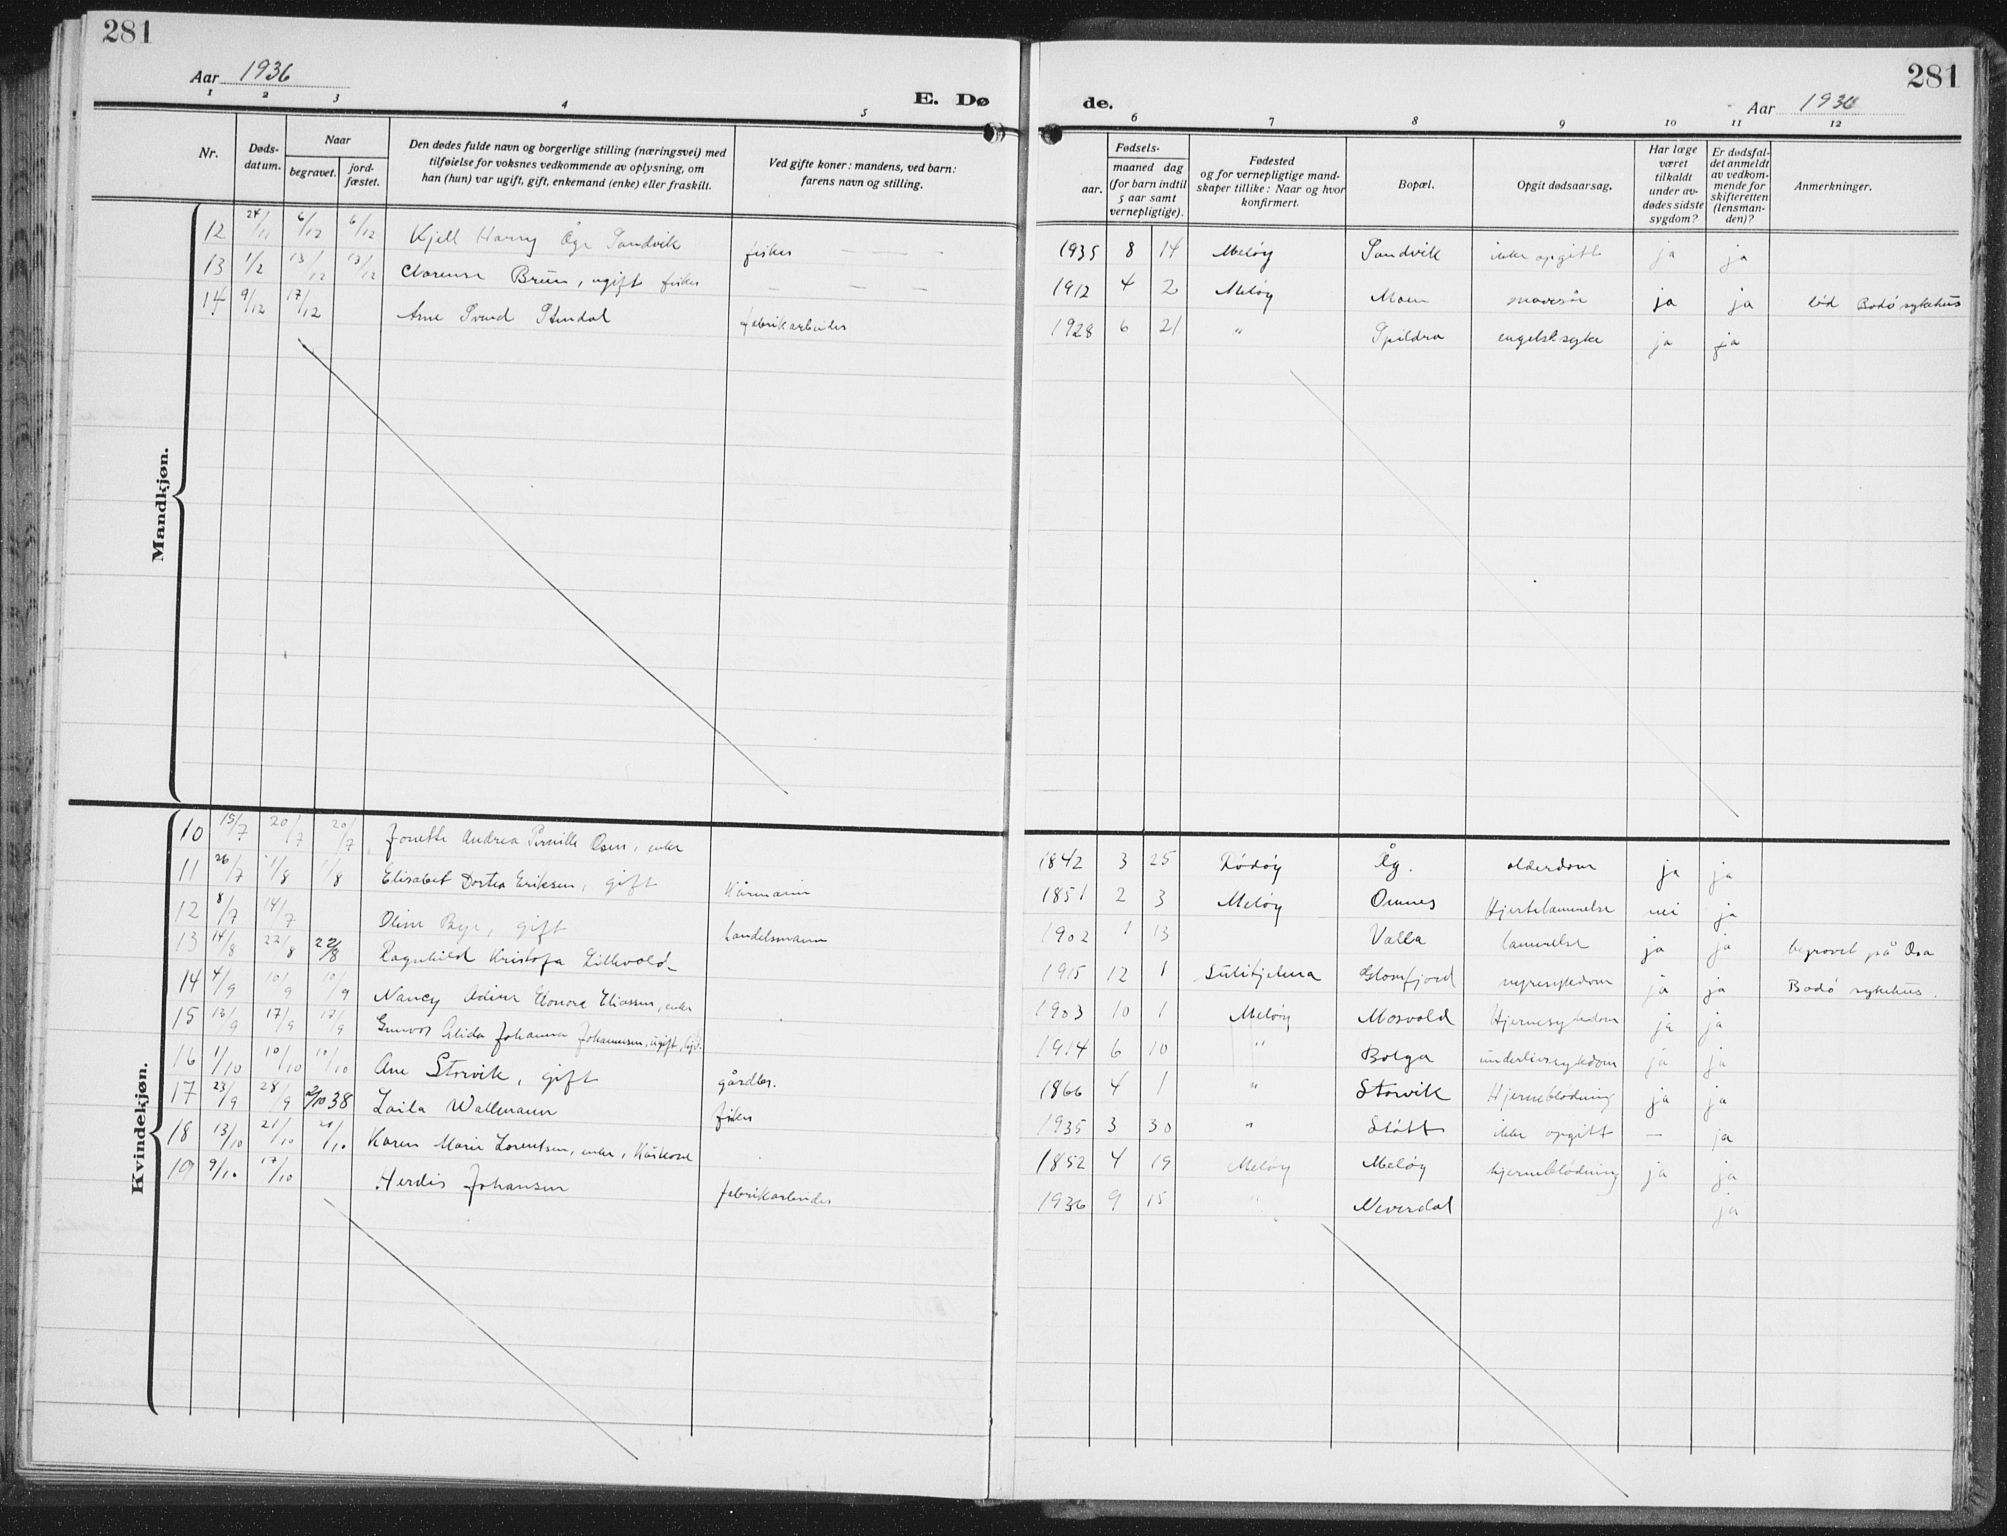 281
Aar 1936
1 2 3 4 5
E. Dø
Nr.
Døds-
datum.
Naar
begravet.
jord-
fæstet.
Den dødes fulde navn og borgerlige stilling (næringsvei) med
tilføielse for voksnes vedkommende av oplysning, om
han (hun) var ugift, gift, enkemand (enke) eller fraskilt.
Ved gifte koner: mandens, ved barn:
farens navn og stilling.
Mandkjøn.
12 24/11 6/12 6/12 Kjell Harry Åge Sandvik fisker
13 1/2 13/12 13/12 Clarense Bruun, ugift fisker
14 9/12 17/12 Arne Svend Stendal fabrikarbeider
Kvindekjøn.
10 15/7 20/7 20/7 Jonette Andrea Pernille Osen, enke
11 26/7 1/8 1/8 Elisabet Dortea Eriksen, gift Kårmann
12 8/7 14/7 Oline Bye, gift handelsmann
13 14/8 22/8 22/8 Ragnhild Kristofa Lillevold
14 4/9 10/9 10/9 Nancy Adine Elonora Eliassen, enke
15 13/9 17/9 17/9 Gunvor Alida Johanna Johannesen, ugift,
16 1/10 10/10 10/10 Ane Storvik, gift gårdbr.
17 23/9 28/9 2/10 38 Laila Wallmann fisker
18 13/10 21/10 21/10 Karen Marie Lorentsen, enke, Kårkone
19 9/10 17/10 Herdis Johansen fabrikarbeider
281
Aar 1936
de.
6 7 8 9 10 11 12
Fødsels-
aar.
maaned dag
(for barn indtil
5 aar samt
vernepligtige).
Fødested
og for vernepligtige mand-
skaper tillike: Naar og hvor
konfirmert.
Bopæl.
Opgit dødsaarsag.
Har læge
været
tilkaldt
under av-
dødes sidste
sygdom?
Er dødsfal-
det anmeldt
av vedkom-
mende for
skifteretten
(lensman-
den)?
Anmerkninger.
1935 8 14 Meløy Sandvik ikke opgitt ja ja
1912 4 2 Meløy Moen mavesår ja ja død Bodø sykehus
1928 6 21 " Spildra engelsk syke ja ja
1842 3 25 Rødøy Åg. alderdom ja ja
1851 2 3 Meløy Ørnes Hjertelammelse nei ja
1902 1 13 Valla lammelse ja ja begravet på Osa
1915 12 1 Sulitjelma Glomfjord nyresykdom ja ja Bodø sykehus.
1903 10 1 Meløy Mosvold Hjernesykdom ja ja
1914 6 10 " Bolga underlivssykdom ja ja
1866 4 1 " Storvik Hjerneblødning ja ja
1935 3 30 " Støtt ikke opgitt — ja
1852 4 19 Meløy Meløy hjerneblødning ja ja
1936 9 15 " Neverdal ja